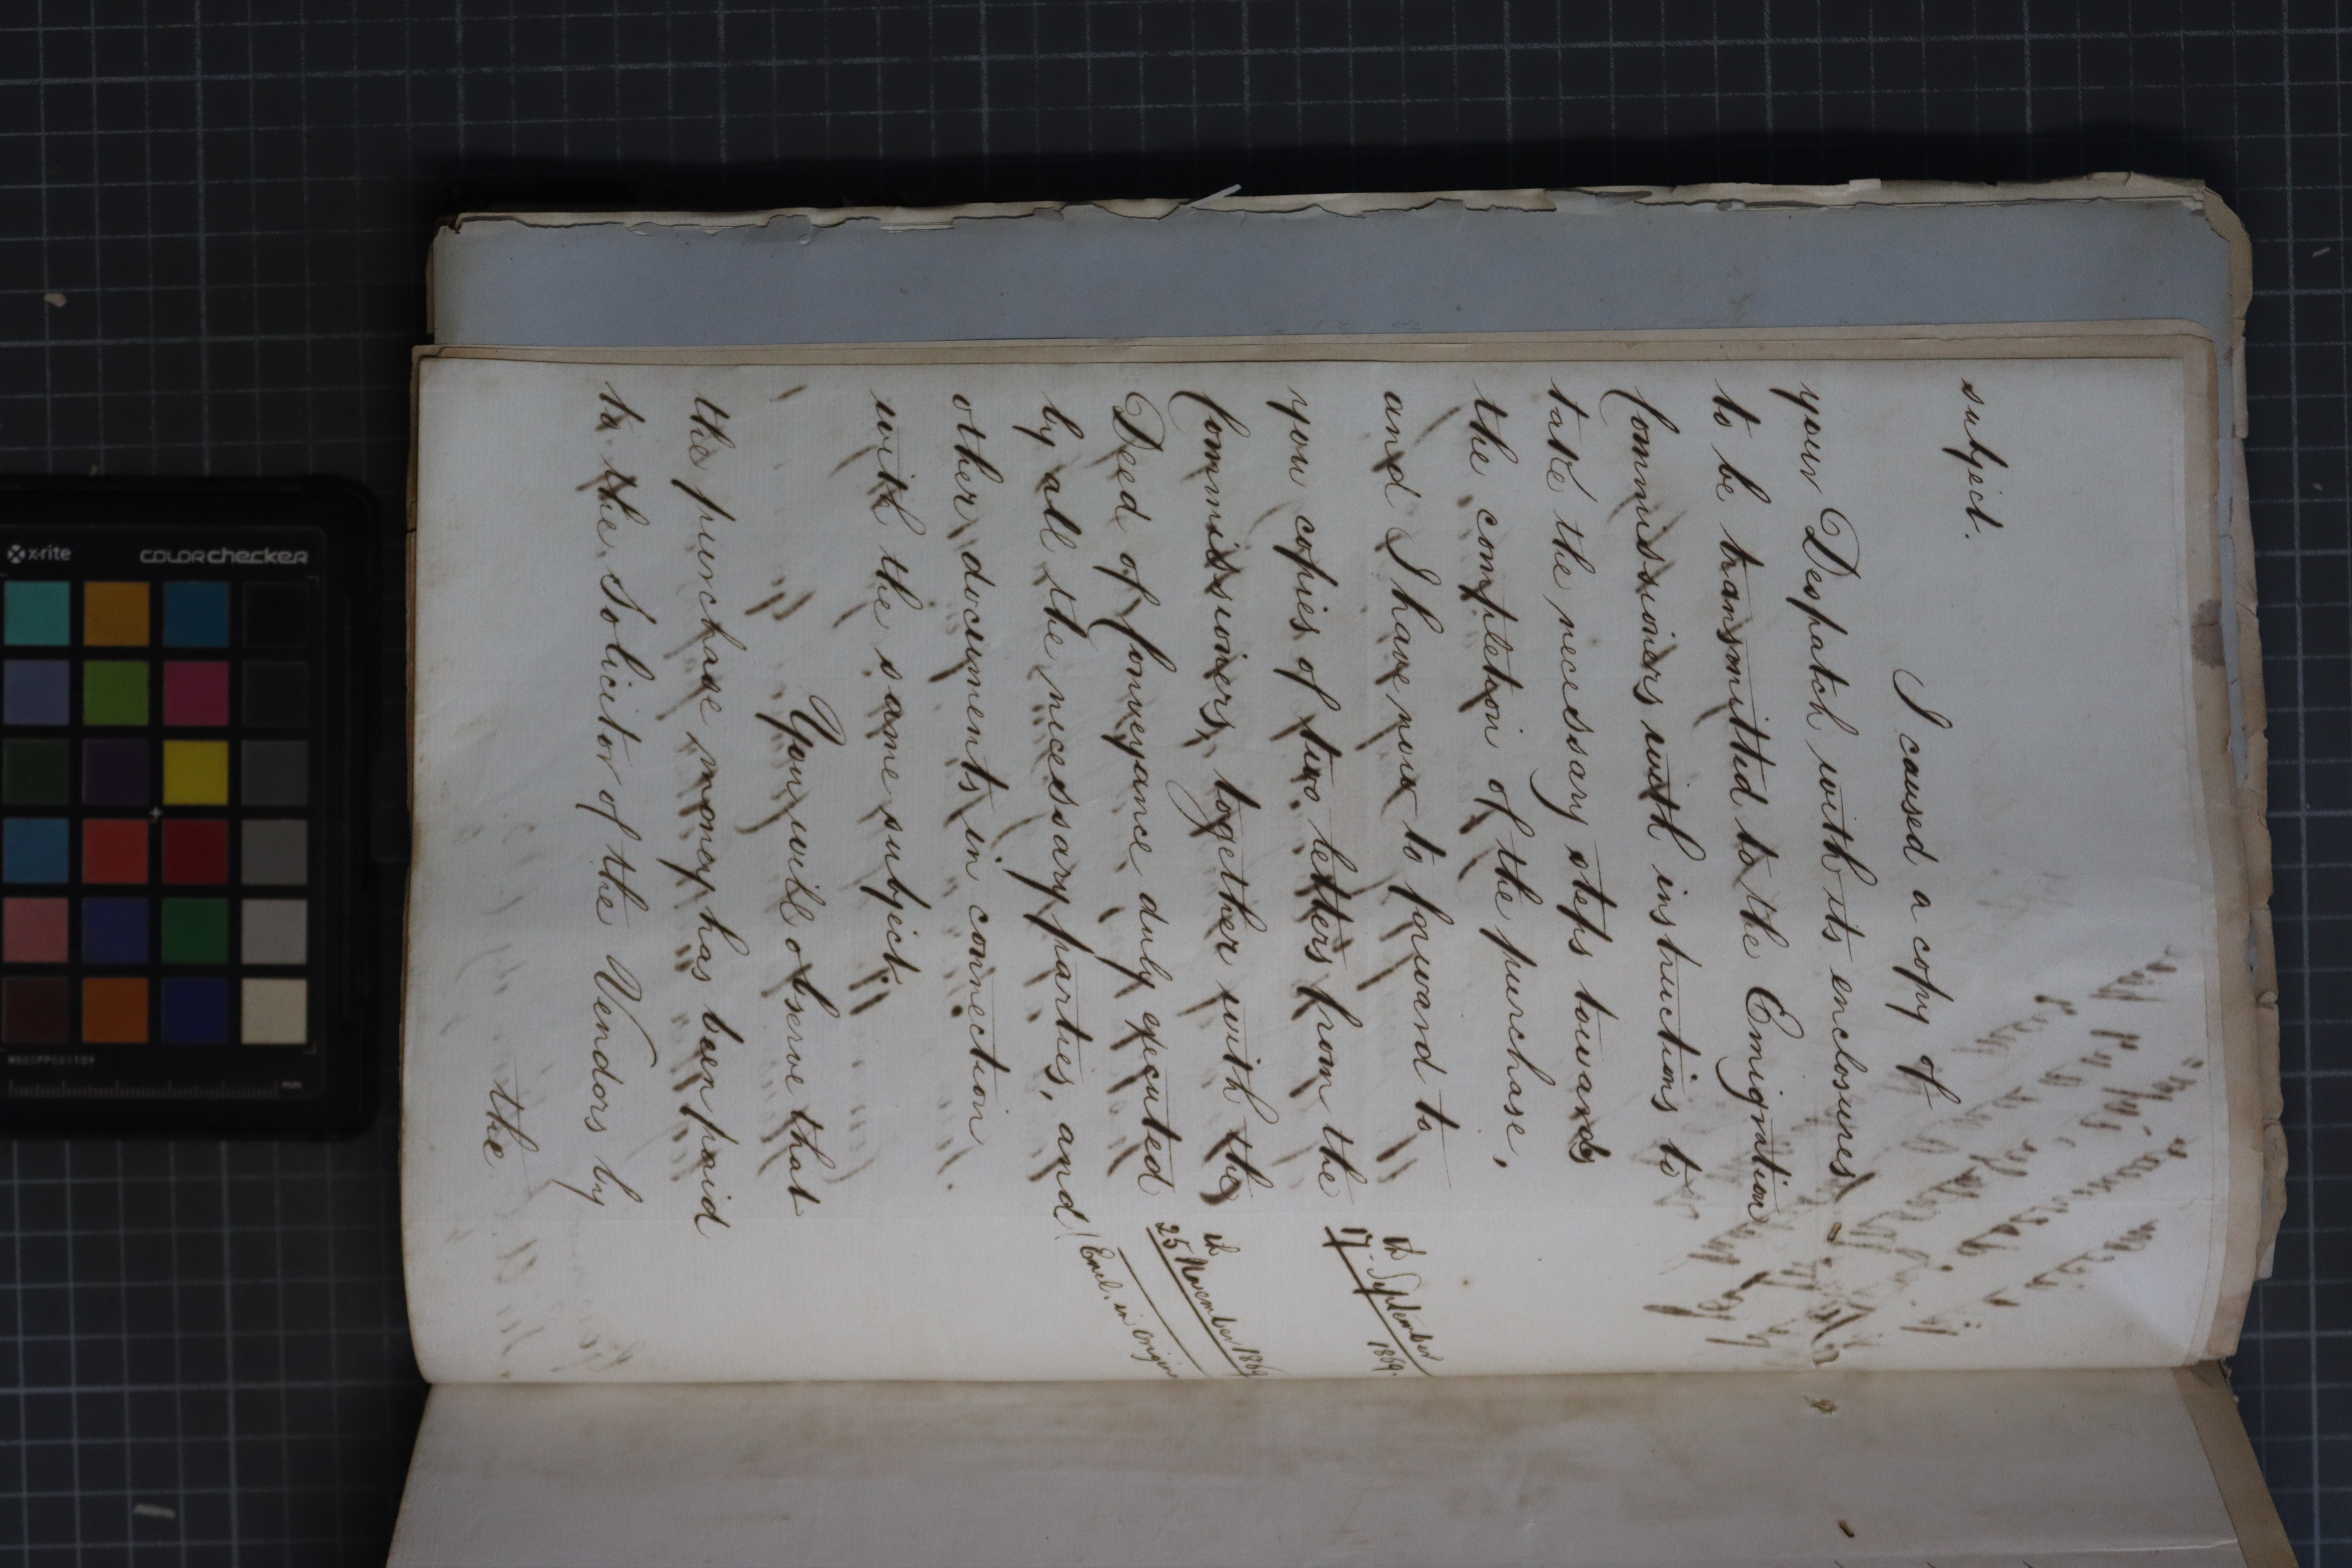 subject.
I caused a copy of
your Despatch with its enclosures
to be transmitted to the Emigration
Commissioners with instructions to
take the necessary steps towards
the completion of the purchase,
and I have now to forward to
you copies of two letters from the
17th September
1869.
Commissioners, together with the
25th November 1869
Deed of Conveyance duly executed
(Encl. in origin
by all the necessary parties, and
other documents in connection
with the same subject.
You will observe that
the purchase money has been paid
to the Solicitor of the Vendors by
the
x-rite
colorchecker
mm